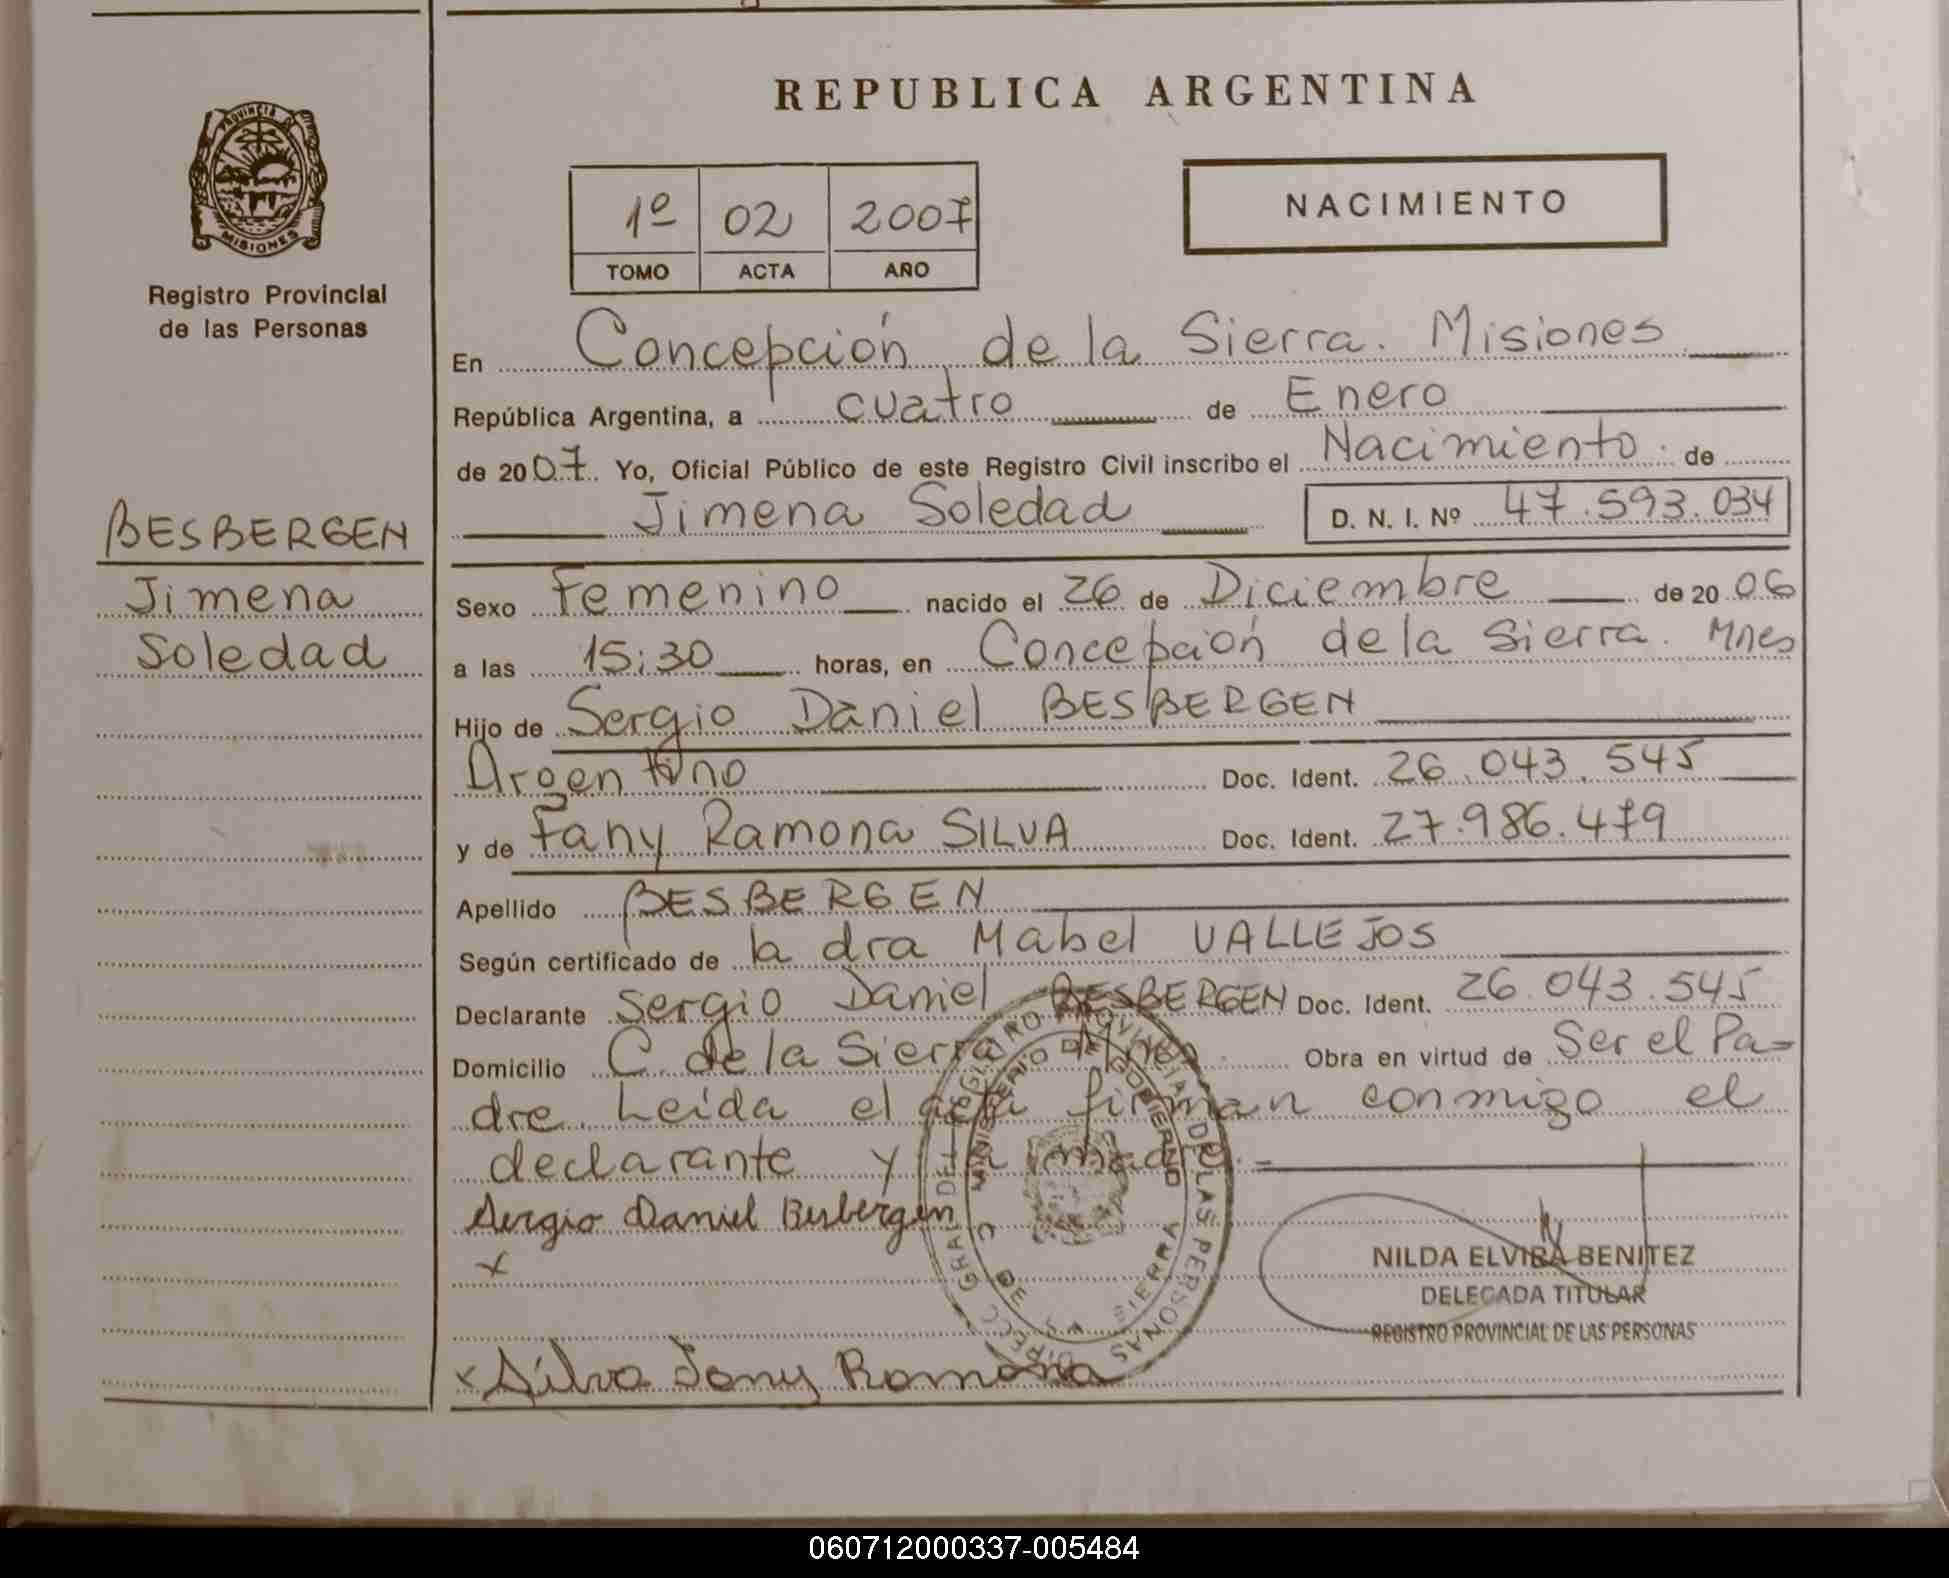 REPUBLICA ARGENTINA
PROVINCIA DE
MISIONES
Registro Provincial
de las Personas
1º 02 2007
TOMO ACTA AÑO
NACIMIENTO
En Concepción de la Sierra. Misiones
República Argentina, a cuatro de Enero
de 2007. Yo, Oficial Público de este Registro Civil inscribo el Nacimiento de
Jimena Soledad D. N. I. Nº 47.593.034
BESBERGEN
Jimena
Soledad
Sexo Femenino nacido el 26 de Diciembre de 2006
a las 15:30 horas, en Concepción de la Sierra. Mnes
Hijo de Sergio Daniel BESBERGEN
Argentino Doc. Ident. 26.043.545
y de Fany Ramona SILVA Doc. Ident. 27.986.479
Apellido BESBERGEN
Según certificado de la dra Mabel VALLEJOS
Declarante Sergio Daniel BESBERGEN Doc. Ident. 26.043.545
Domicilio C. de la Sierra Mnes. Obra en virtud de Ser el Pa=
dre. Leída el acta firman conmigo el
declarante y la madre.=
Sergio Daniel Besbergen
x
x Silva Fany Ramona
DIRECC GRAL DEL REGISTRO PROVINCIAL DE LAS PERSONAS
MINISTERIO DE GOBIERNO
C DE SIERRA
NILDA ELVIRA BENITEZ
DELEGADA TITULAR
REGISTRO PROVINCIAL DE LAS PERSONAS
060712000337-005484